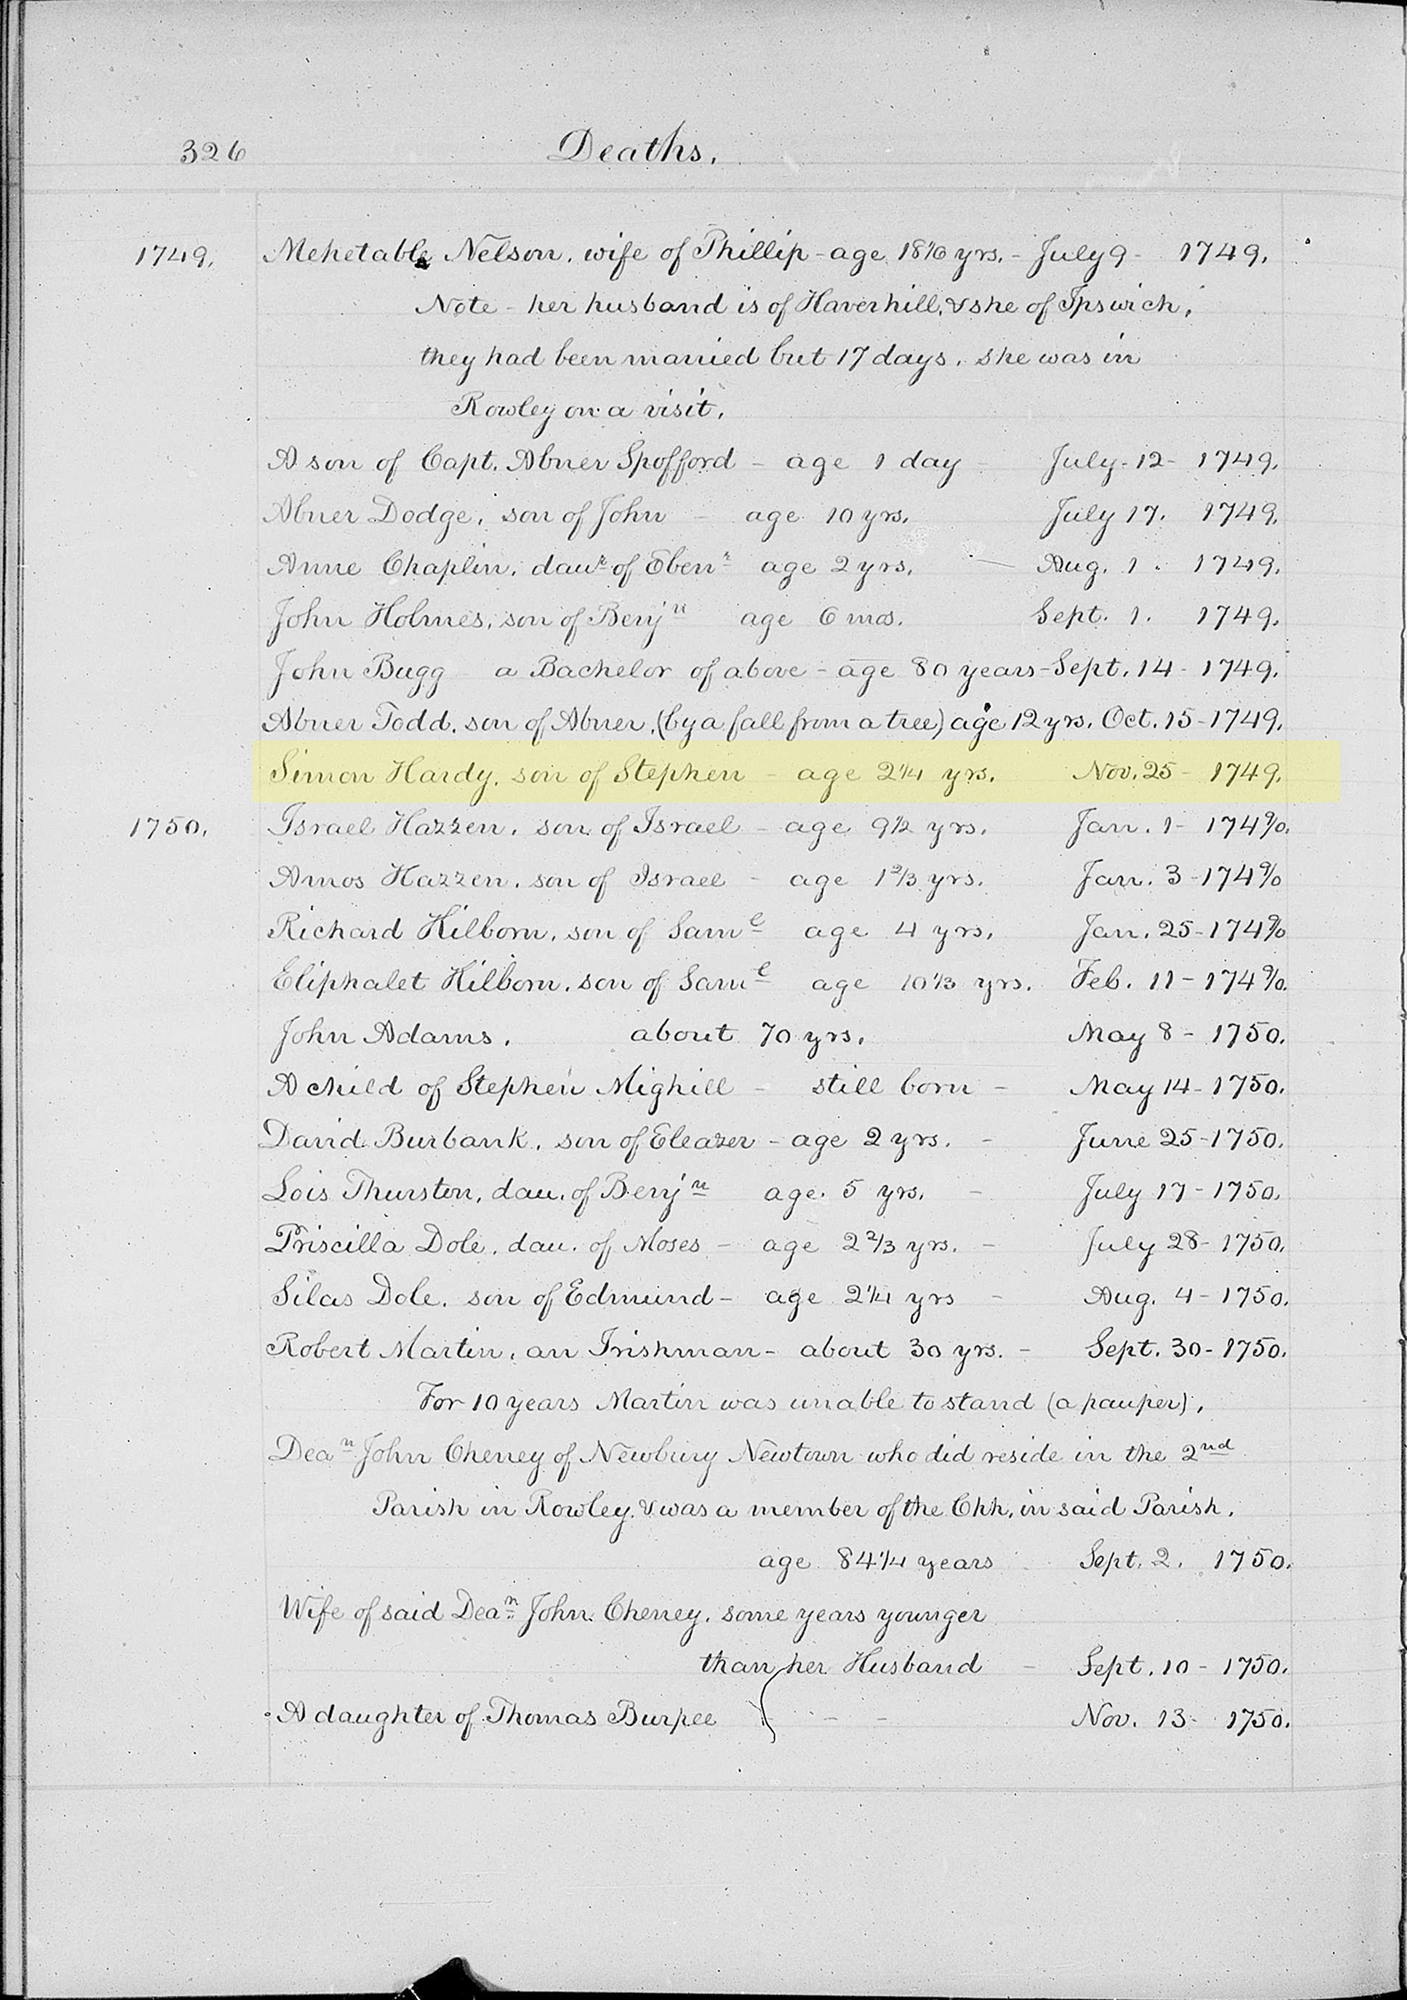 326 Deaths.
1749. Mehetable Nelson, wife of Phillip - age 18 1/6 yrs. - July 9 - 1749.
Note - her husband is of Haverhill, & she of Ipswich,
they had been married but 17 days, she was in
Rowley on a visit.
A son of Capt. Abner Spofford - age 1 day - July - 12 - 1749.
Abner Dodge, son of John - age 10 yrs. July 17. 1749.
Anne Chaplin, dauʳ of Ebenʳ age 2 yrs. - Aug. 1. 1749.
John Holmes, son of Benjⁿ age 6 mos. Sept. 1. 1749.
John Bugg a Bachelor of above - age 80 years - Sept. 14 - 1749.
Abner Todd, son of Abner, (by a fall from a tree) age 12 yrs. Oct. 15 - 1749.
Simon Hardy, son of Stephen - age 2 1/4 yrs. Nov. 25 - 1749.
1750. Israel Hazzen, son of Israel - age 9 1/2 yrs. Jan. 1 - 174 9/0.
Amos Hazzen, son of Israel - age 1 2/3 yrs. Jan. 3 - 174 9/0
Richard Kilborn, son of Samˡ age 4 yrs. Jan. 25 - 174 9/0
Eliphalet Kilborn, son of Samˡ age 10 1/3 yrs. Feb. 11 - 174 9/0.
John Adams. about 70 yrs. May 8 - 1750.
A child of Stephen Mighill - still born - May 14 - 1750.
David Burbank, son of Eleazer - age 2 yrs. - June 25 - 1750.
Lois Thurston, dau. of Benjⁿ age 5 yrs. - July 17 - 1750.
Priscilla Dole, dau. of Moses - age 2 2/3 yrs. - July 28 - 1750.
Silas Dole, son of Edmund - age 2 1/4 yrs - Aug. 4 - 1750.
Robert Martin, an Irishman - about 30 yrs. - Sept. 30 - 1750.
For 10 years Martin was unable to stand (a pauper),
Deaⁿ John Cheney of Newbury Newtown who did reside in the 2ⁿᵈ
Parish in Rowley, & was a member of the Chh, in said Parish,
age 84 1/4 years Sept. 2. 1750.
Wife of said Deaⁿ John Cheney, some years younger
than her Husband - Sept. 10 - 1750.
A daughter of Thomas Burpee - - - Nov. 13 - 1750.